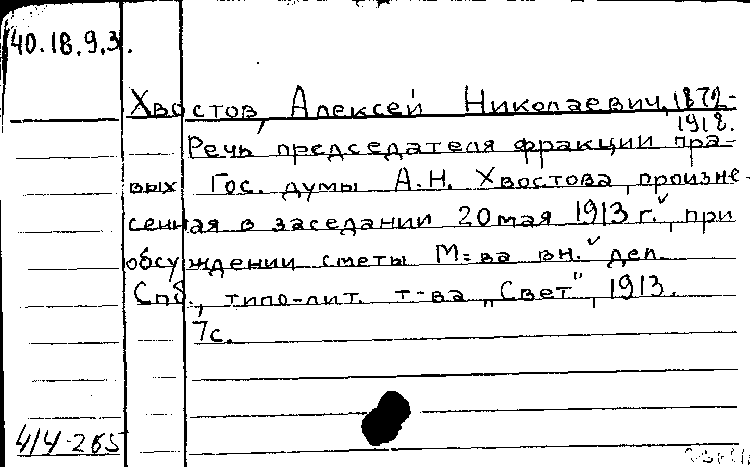 40.18.9.3.
Хвостов, Алексей Николаевич, 1872-
1918.
Речь председателя фракции пра-
вых Гос. думы А.Н. Хвостова, произне-
сенная в заседании 20 мая 1913 г., при
обсуждении сметы М-ва вн. дел.
Спб., типо-лит. т-ва „Свет", 1913.
7с.
4/4-265